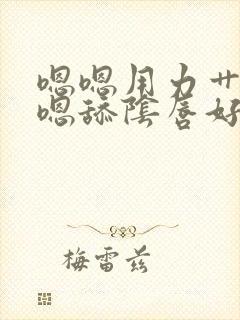 嗯嗯用力艹
嗯舔陰唇好
梅雷兹